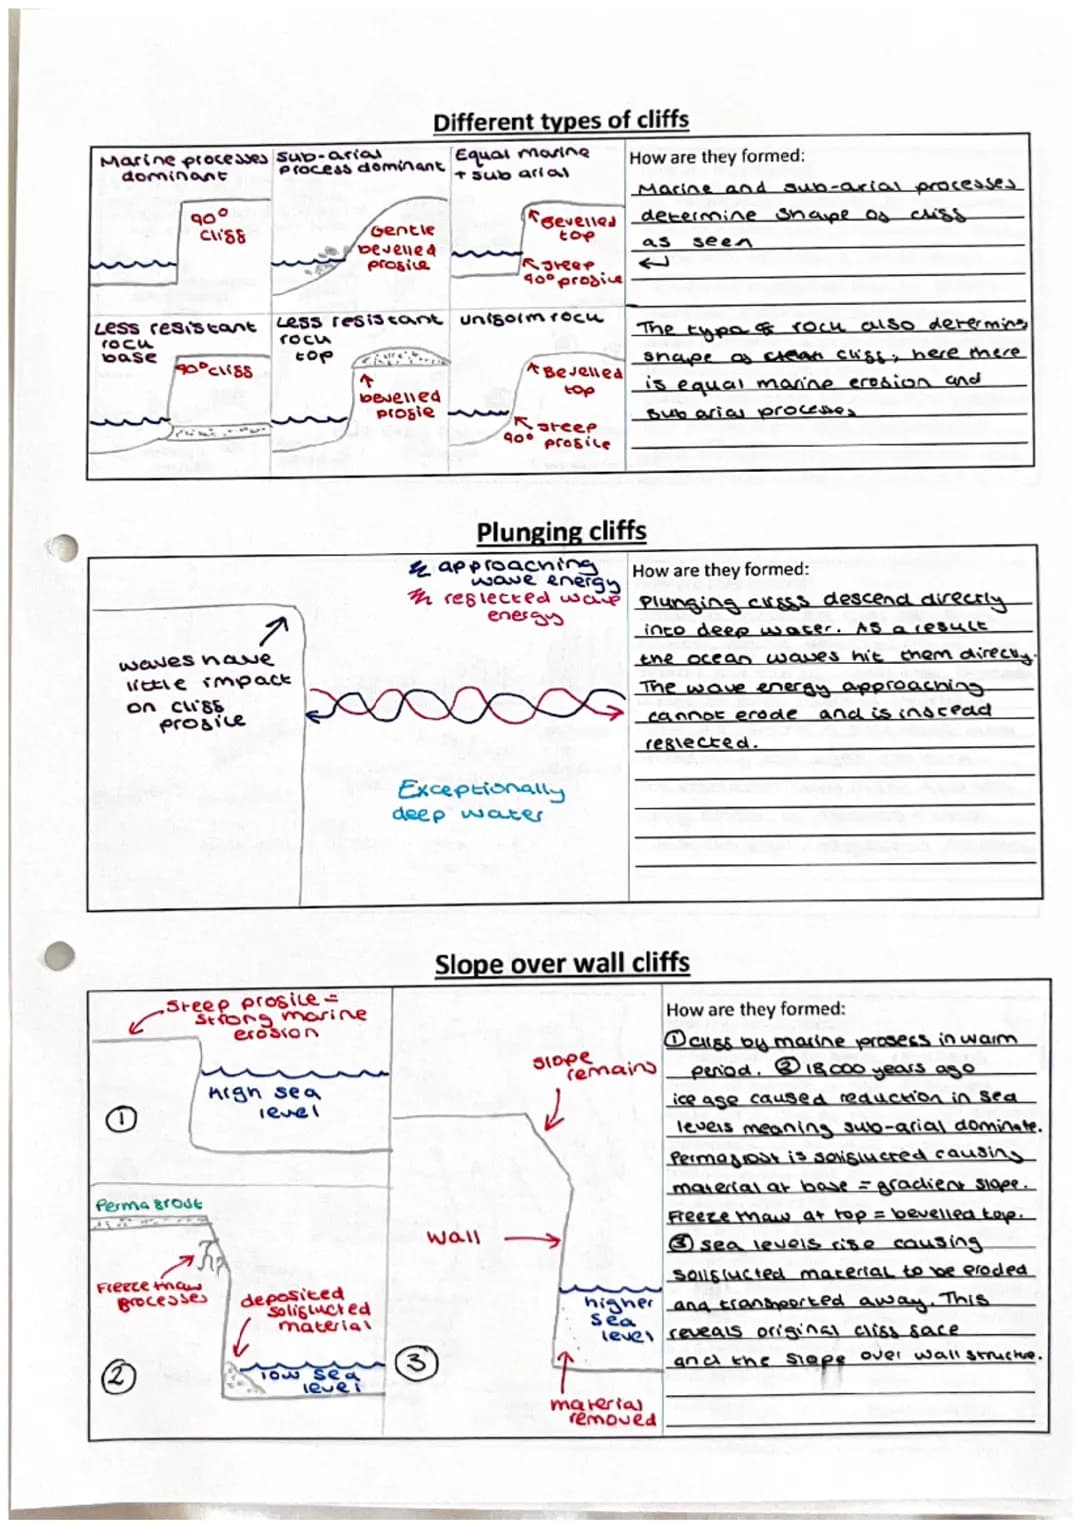 Different types of cliffs
Marine processes
dominant
90°
cliff
sub-arial
process dominant
Gentle
bevelled
profile
Equal marine
+ sub arial
Bevelled
top
steep
90° profile
How are they formed:
Marine and sub-arial processes
determine shape of cliff
as seen
Less resistant
rock
base
90° cliff
Less resistant
rock
top
bevelled
profile
uniform rock
Bevelled
top
steep
90° profile
The type of rock also determins
shape of cliff, here there
is equal marine erosion and
sub arial processes
Plunging cliffs
approaching
wave energy
reflected wave
energy
waves have
little impact
on cliff
profile
Exceptionally
deep water
How are they formed:
Plunging cliffs descend directly
into deep water. As a result
the ocean waves hit them directly.
The wave energy approaching
cannot erode and is instead
reflected.
Slope over wall cliffs
Steep profile =
strong marine
erosion
high sea
level
1
Permafrost
Freeze thaw
processes
deposited
soliflucted
material
low sea
level
2
slope
remains
wall
higher
sea
level
3
material
removed
How are they formed:
① cliff by marine prosess in warm
period. ② 18,000 years ago
ice age caused reduction in sea
levels meaning sub-arial dominate.
Permafrost is soliflucted causing
material at base = gradient slope.
Freeze thaw at top = bevelled top.
③ sea levels rise causing
soliflucted material to be eroded
and transported away. This
reveals original cliff face
and the slope over wall structure.